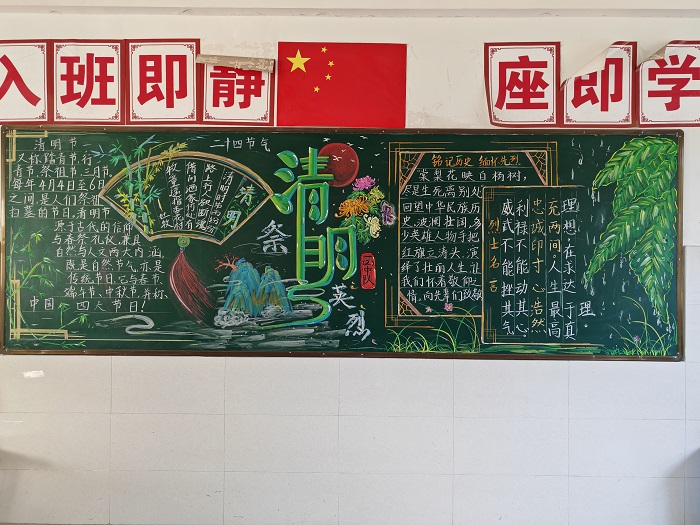 入班即静
座即学
清明节
又称踏青节、行
青节、祭祖节、三月节
每年4月4日至6日
之间是人们祭祖
扫墓的节日,清明节
兼具自然与人文两大内涵,
既是自然节气,亦是
传统节日,它与春节、
端午节、中秋节并称
中国四大节日!
二十四节气
清明
清明时节雨纷纷
路上行人欲断魂
借问酒家何处有
牧童遥指杏花村
杜牧
清明
祭英烈
四中队
铭记历史 缅怀先烈
棠梨花映白杨树,
尽是生死离别处
回望中华民族历
史,波澜壮阔,多
少英雄人物手把
红旗立涛头,演
绎了壮丽人生,让
我们怀着敬仰之
情,向先辈们致敬
烈士名言
理想,在永达于真理。
充两间。人生最高
忠诚印寸心,浩然
利禄不能动其心
威武不能挫其气,